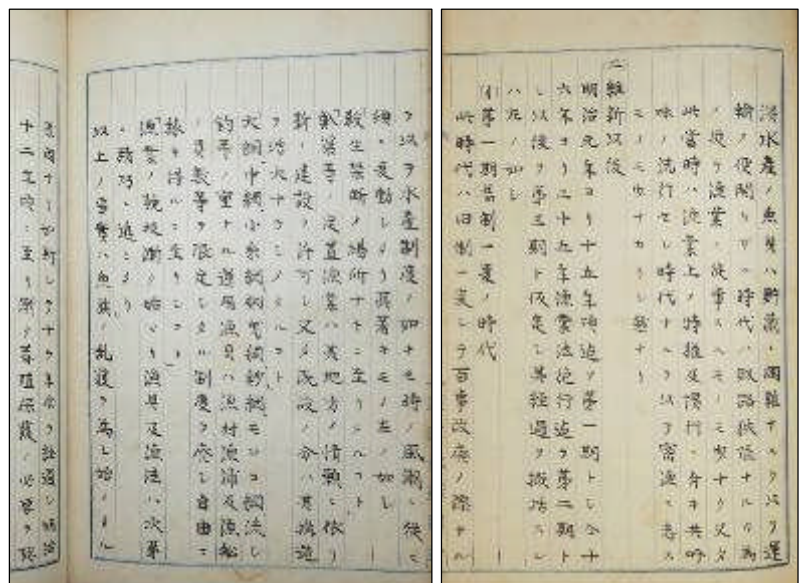 淡水産ノ魚貝ハ貯蔵ノ困難ナルヲ以テ運
輸ノ便開ケサル時代ハ販路狭隘ナルノ為
従テ漁業ニ従事スルモノモ少ナク又タ
此當時ハ漁業上ノ特権及慣行ニ其吟
味ノ流行セシ時代ナルヲ以テ密漁
モノモ少ナカラシ
二維新以後
明治元年ヨリ十五年頃迄ヲ第一期トシ仝十
六年ヨリ三十五年漁業法施行迄ヲ第二期ト
シ以後ヲ第三期ト仮定シ其経過ヲ概括スレ
ハ左ノ如シ
(イ)第一期旧制一変ノ時代
此時代ハ旧制一変シテ百事改廃ノ際ナル
ヲ以テ水産制度ノ如キモ時ノ風潮ニ従ヒ
種々変動シタリ其著キモノ左ノ如シ
殺生禁断ノ場所ナキニ至リシコト
簗等ノ定置漁業ハ其地方ノ情願ニ依リ
新ニ建設ノ許可シ又タ既設ノ分ハ其構造
ヲ大ナラシメタルコト
大網中網小糸網モシコ網流シ
釣等ノ重ナル運用漁具ハ漁村漁浦及漁船
ノ員数等ヲ限定シタル制度ヲ廃シ自由ニ
稼キ得ルニ至リシコト
漁業ノ漸ク始マリ漁具及漁法ハ次第
ニ精巧ニ進ミタリ
以上ノ事実ハ魚族ノ乱獲ヲ為シ始メタル
如斯シテ十ヶ年余ヲ経過シ明治
十二年頃ニ至リ漸ク養殖保護ノ必要ヲ感